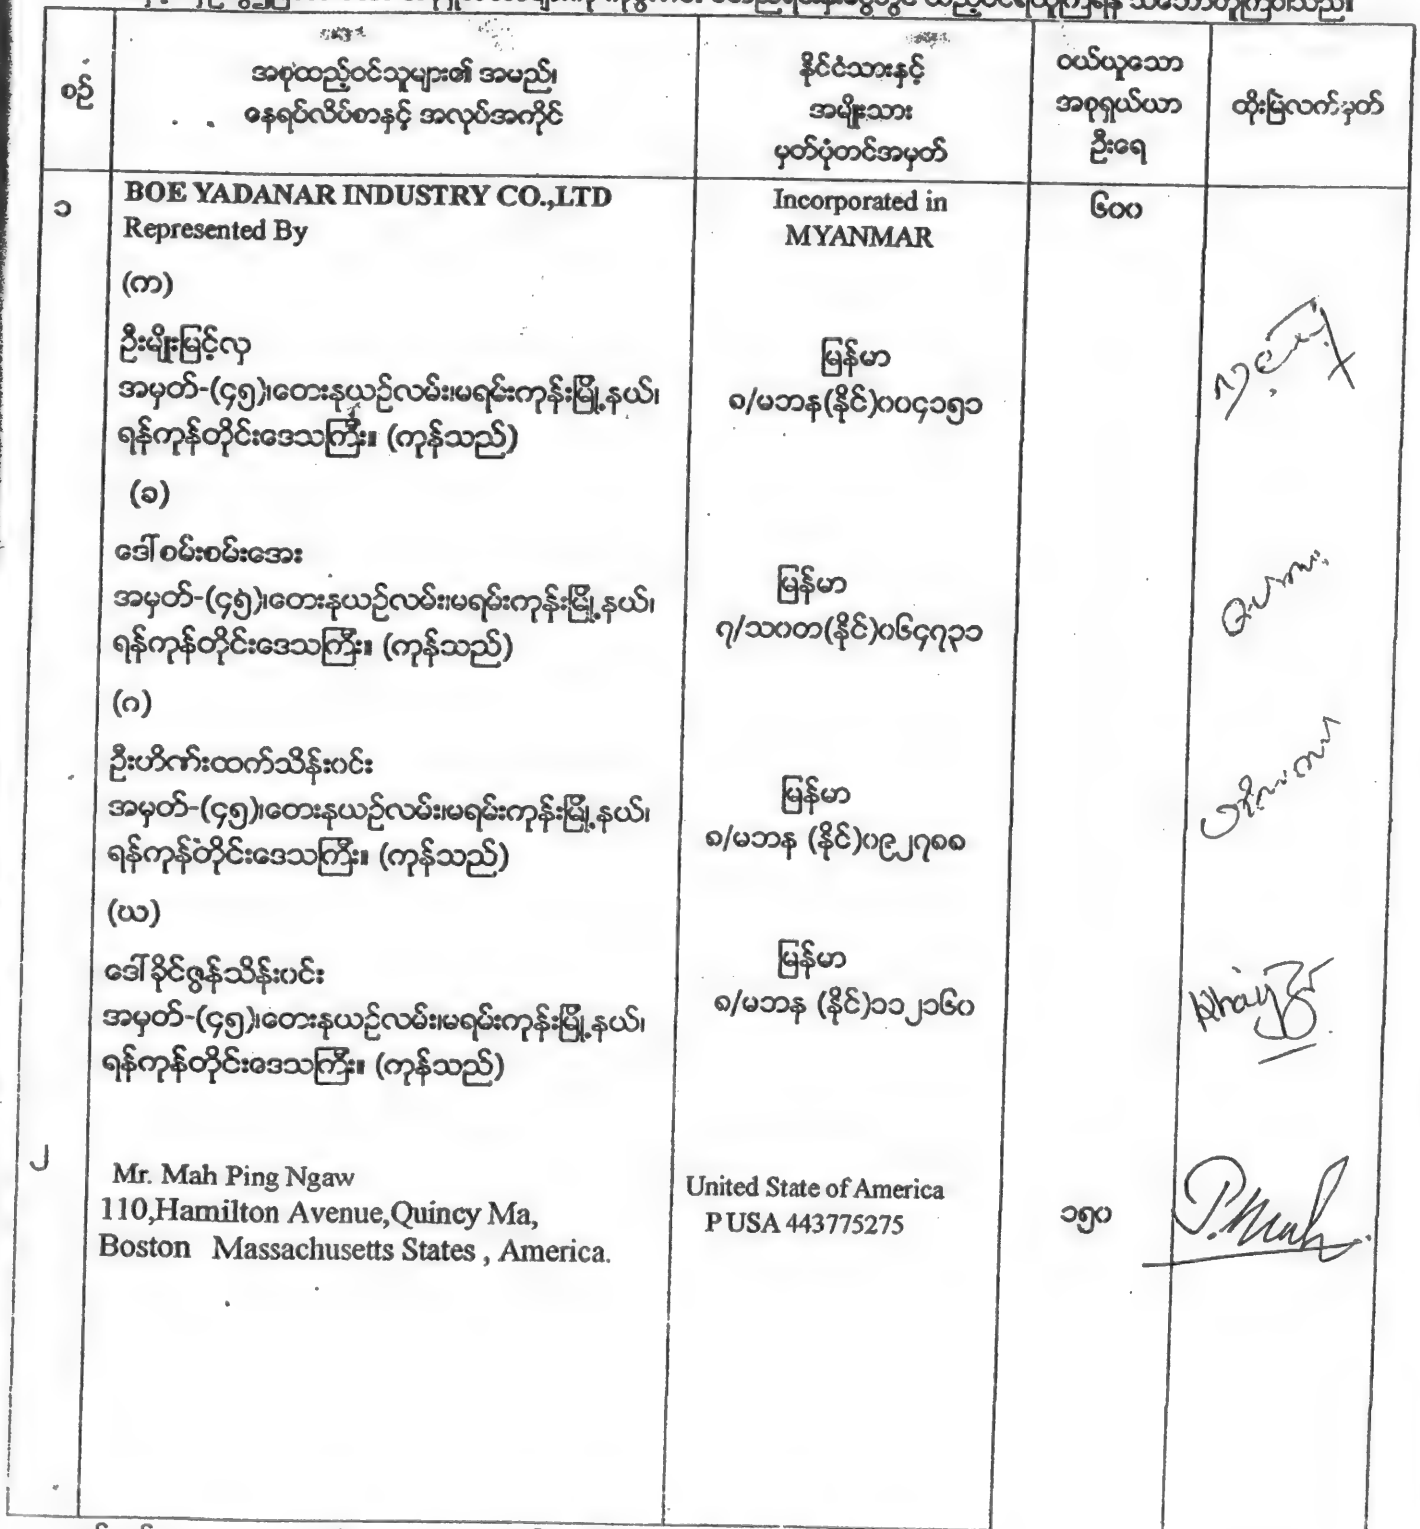 စဉ်
အစုထည့်ဝင်သူများ၏ အမည်၊
နေရပ်လိပ်စာနှင့် အလုပ်အကိုင်
နိုင်ငံသားနှင့်
အမျိုးသား
မှတ်ပုံတင်အမှတ်
ဝယ်ယူသော
အစုရှယ်ယာ
ဦးရေ
ထိုးမြဲလက်မှတ်
၁
BOE YADANAR INDUSTRY CO.,LTD
Represented By
Incorporated in
MYANMAR
၆၀၀
(က)
ဦးမျိုးမြင့်လှ
အမှတ်-(၄၅)၊တေးနုယဉ်လမ်း၊မရမ်းကုန်းမြို့နယ်၊
ရန်ကုန်တိုင်းဒေသကြီး။ (ကုန်သည်)
မြန်မာ
၈/မဘန(နိုင်)၀၀၄၁၅၁
(ခ)
ဒေါ်စမ်းစမ်းအေး
အမှတ်-(၄၅)၊တေးနုယဉ်လမ်း၊မရမ်းကုန်းမြို့နယ်၊
ရန်ကုန်တိုင်းဒေသကြီး။ (ကုန်သည်)
မြန်မာ
၇/သဝတ(နိုင်)၀၆၄၇၃၁
(ဂ)
ဦးဟိဏ်းထက်သိန်းဝင်း
အမှတ်-(၄၅)၊တေးနုယဉ်လမ်း၊မရမ်းကုန်းမြို့နယ်၊
ရန်ကုန်တိုင်းဒေသကြီး။ (ကုန်သည်)
မြန်မာ
၈/မဘန (နိုင်)၀၉၂၇၈၈
(ဃ)
ဒေါ်ခိုင်ဇွန်သိန်းဝင်း
အမှတ်-(၄၅)၊တေးနုယဉ်လမ်း၊မရမ်းကုန်းမြို့နယ်၊
ရန်ကုန်တိုင်းဒေသကြီး။ (ကုန်သည်)
မြန်မာ
၈/မဘန (နိုင်)၁၁၂၁၆၀
၂
Mr. Mah Ping Ngaw
110,Hamilton Avenue,Quincy Ma,
Boston Massachusetts States , America.
United State of America
P USA 443775275
၁၅၀
P.Mah